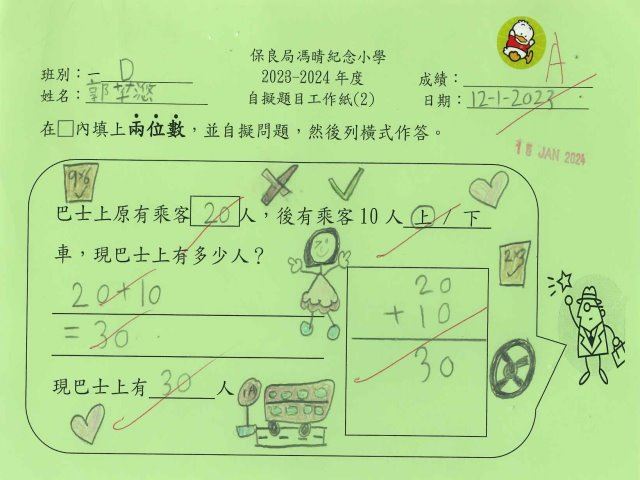 保良局馮晴紀念小學
班別：一D
2023-2024 年度
成績：A
姓名：郭芊悠
自擬題目工作紙(2)
日期：12-1-2023
在□內填上兩位數，並自擬問題，然後列橫式作答。
18 JAN 2024
9×6
巴士上原有乘客 20 人，後有乘客 10 人 上 / 下
車，現巴士上有多少人？
2×3
20+10
= 30
20
+ 10
30
現巴士上有 30 人